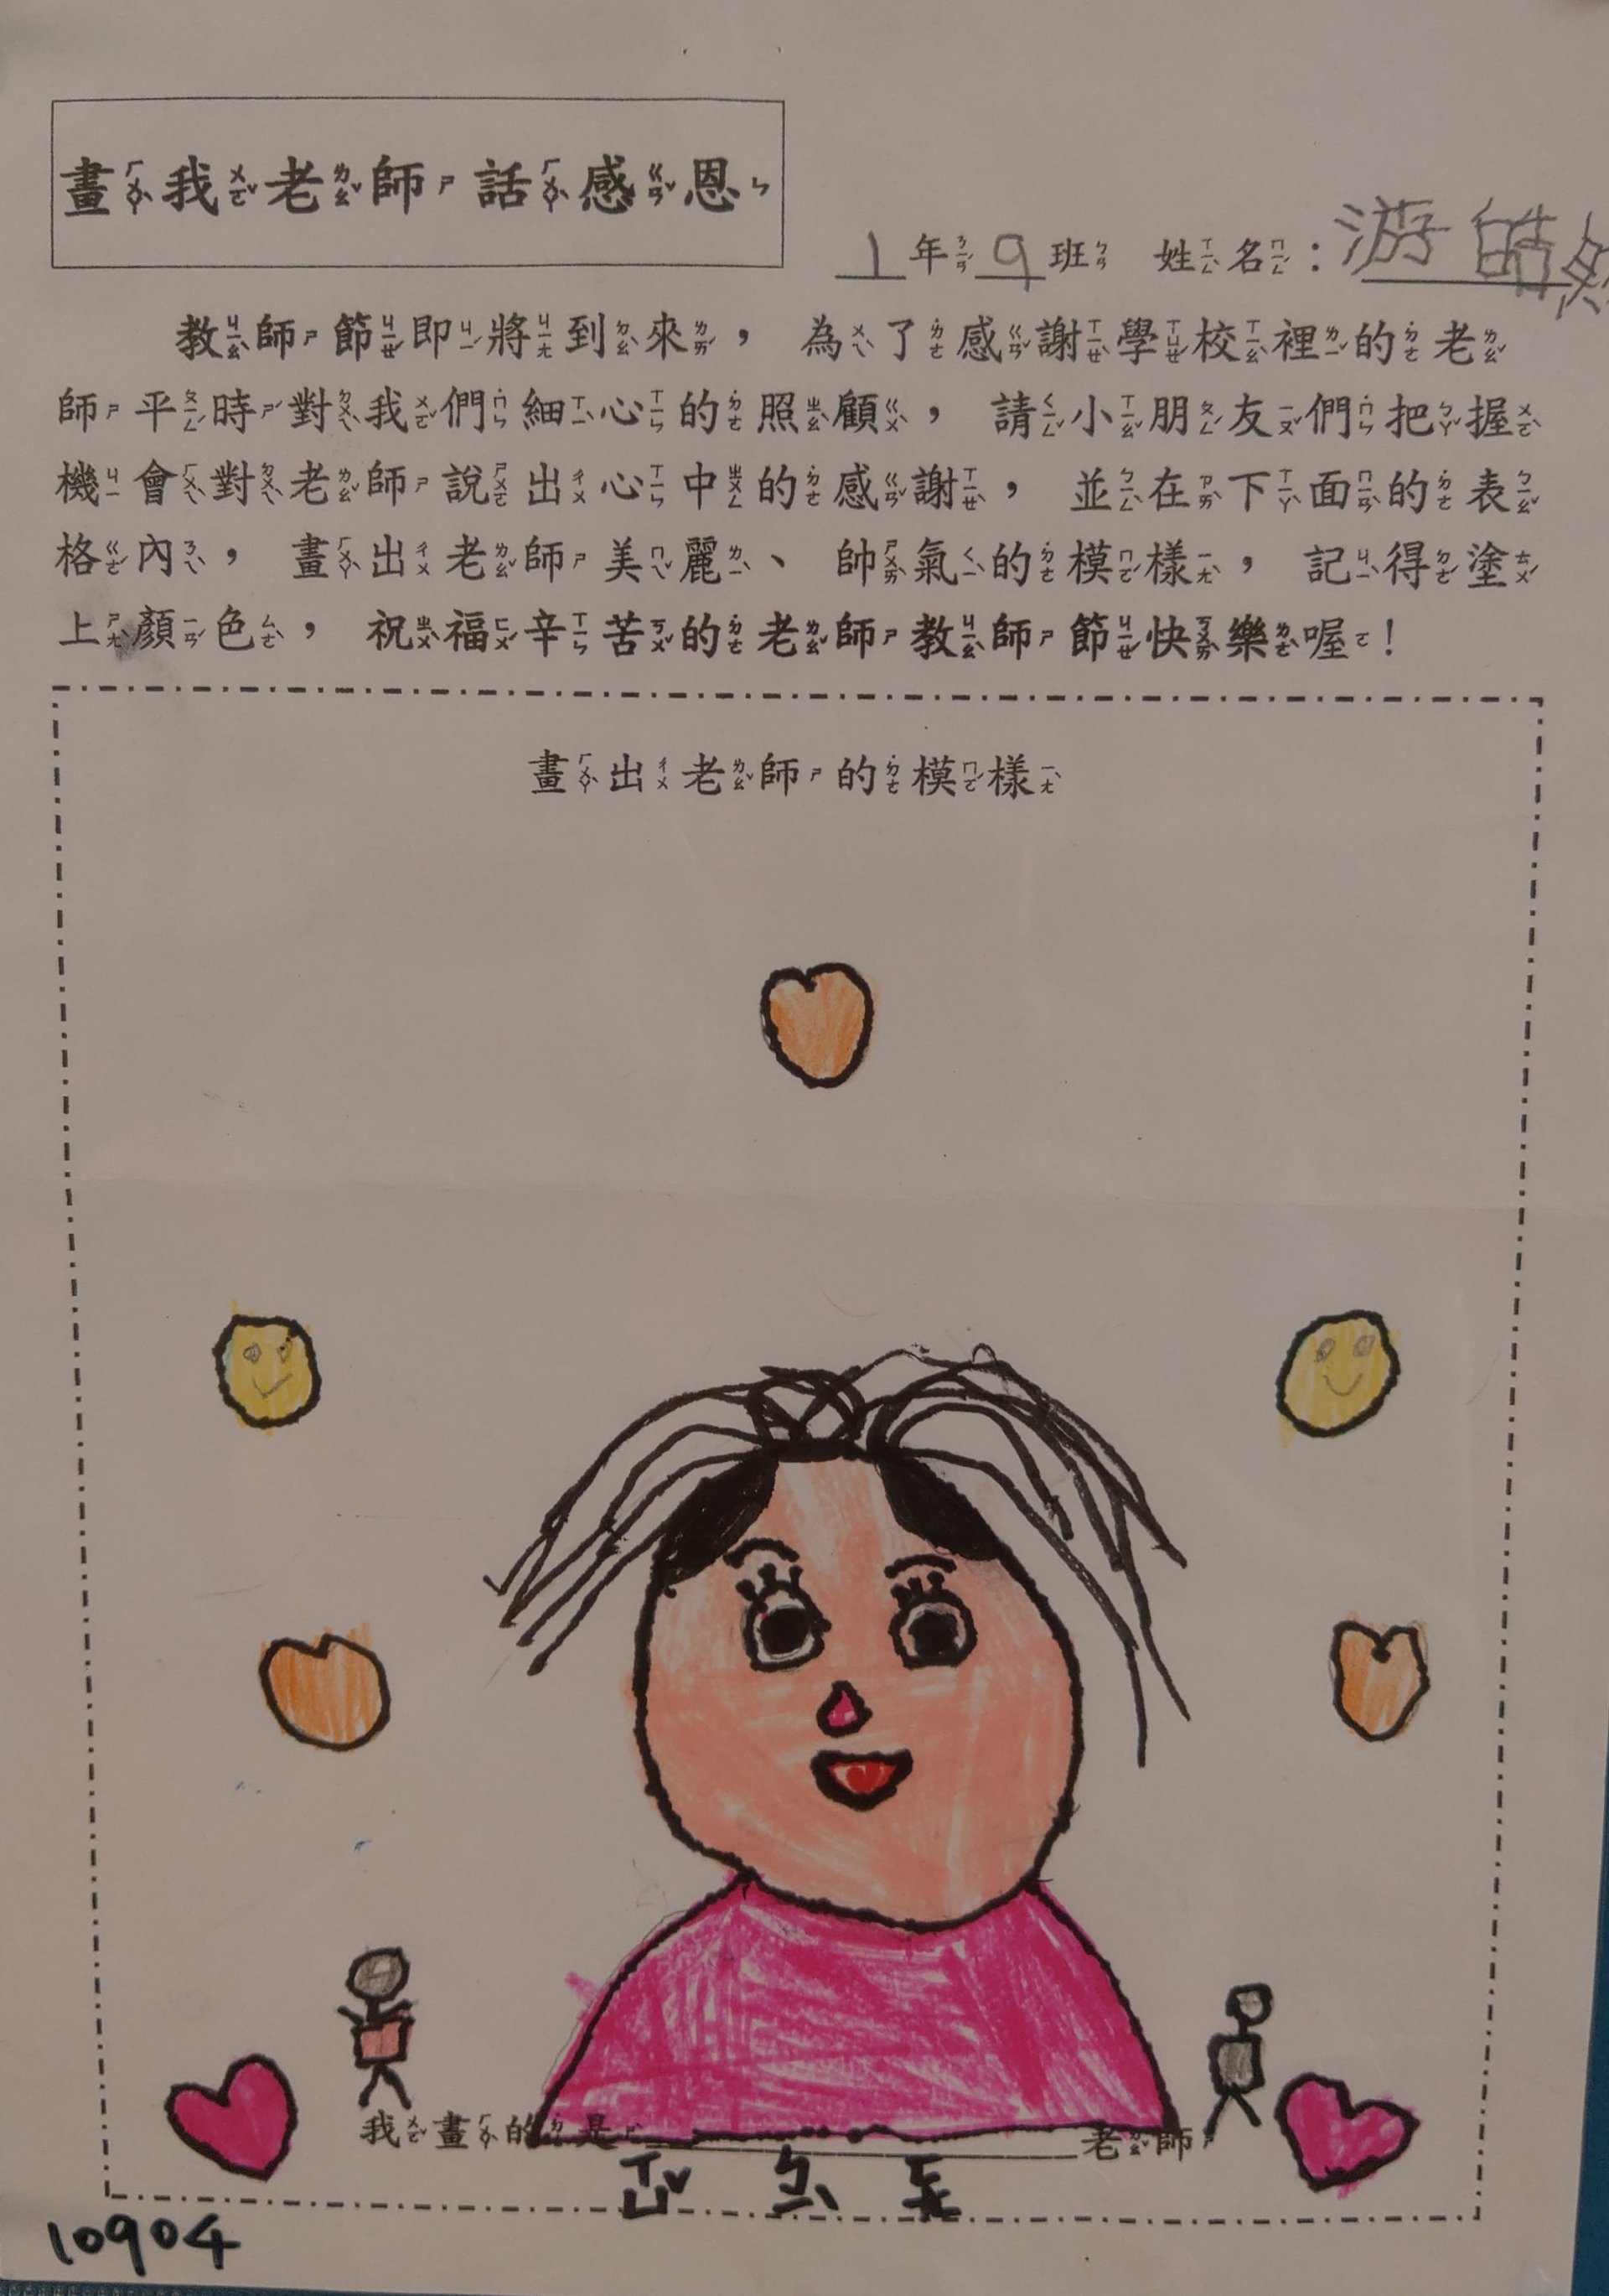 畫我老師 話感恩
1年9班 姓名：游皓
教師節即將到來，為了感謝學校裡的老
師平時對我們細心的照顧，請小朋友們把握
機會對老師說出心中的感謝，並在下面的表
格內，畫出老師美麗、帥氣的模樣，記得塗
上顏色，祝福辛苦的老師教師節快樂喔！
畫出老師的模樣
我畫的是 老師
10904